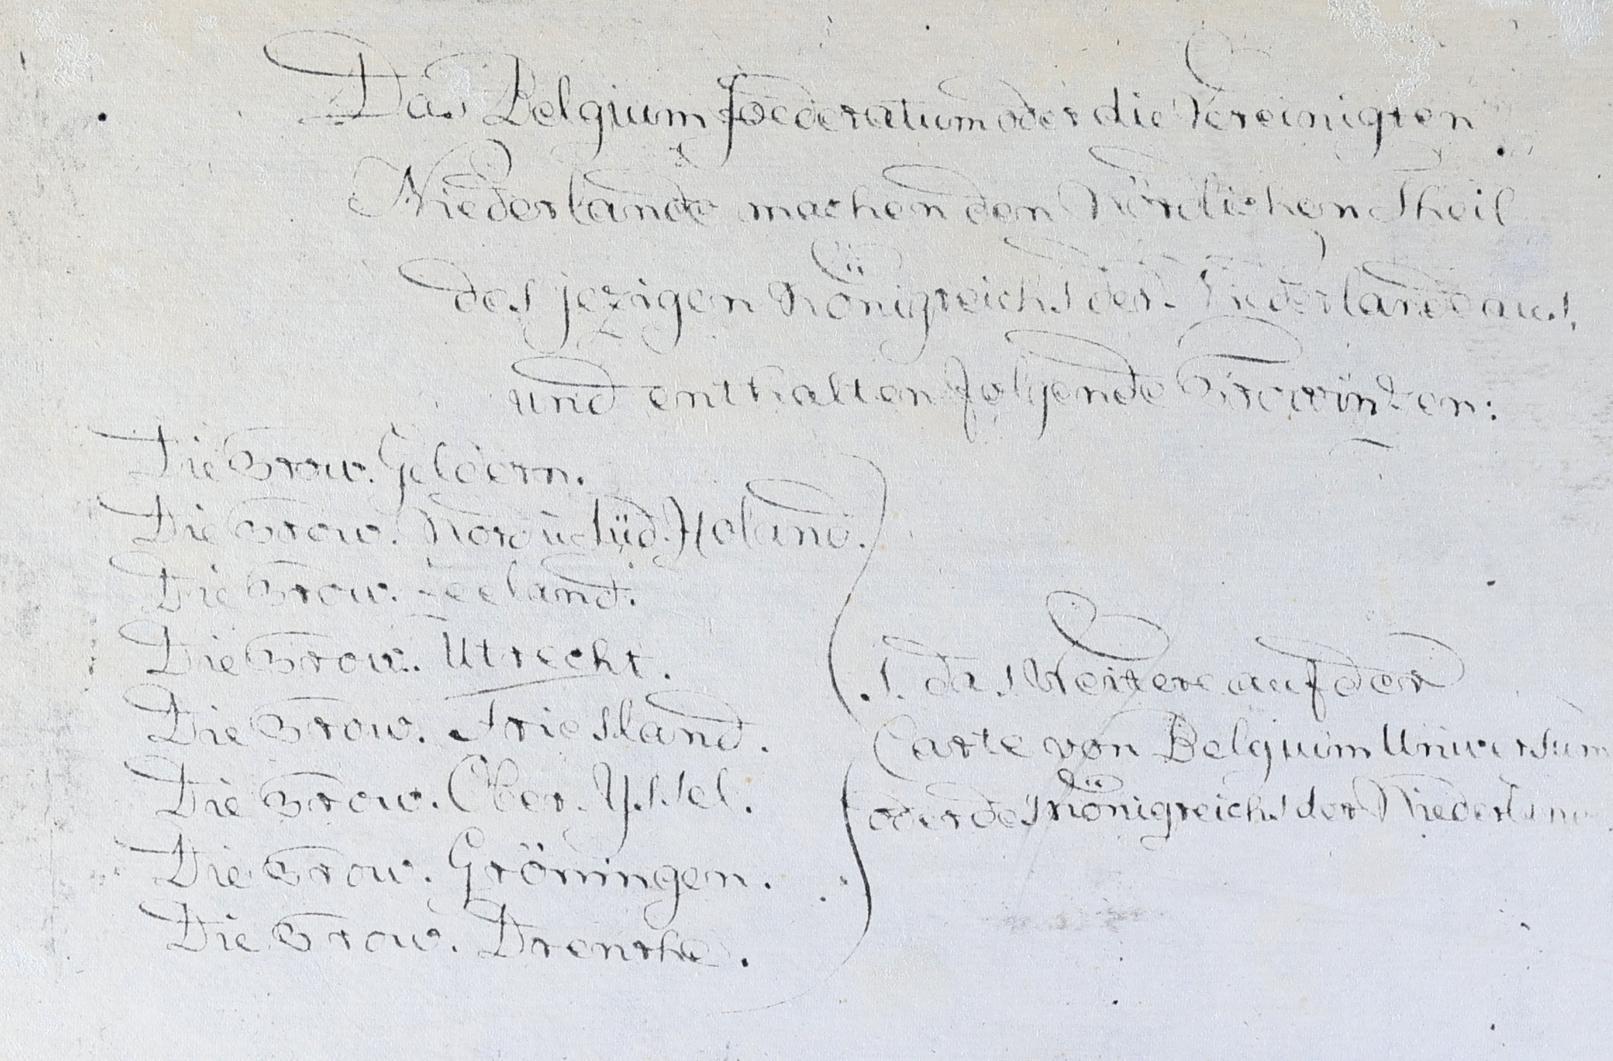 Das Belgium foederatum oder die Vereinigten
Niederlande machen den Nördlichen Theil
des jezigen Königreichs der Niederlande aus,
und enthalten folgende Provinzen:
Die Prov. Geldern.
Die Prov. Nord u. Süd. Holand.
Die Prov. Seeland.
Die Prov. Utrecht.
Die Prov. Friesland.
Die Prov. Ober. Yssel.
Die Prov. Gröningen.
Die Prov. Drenthe.
s. das Weitere auf der
Carte von Belgium Universum
oder des Königreichs der Niederlan